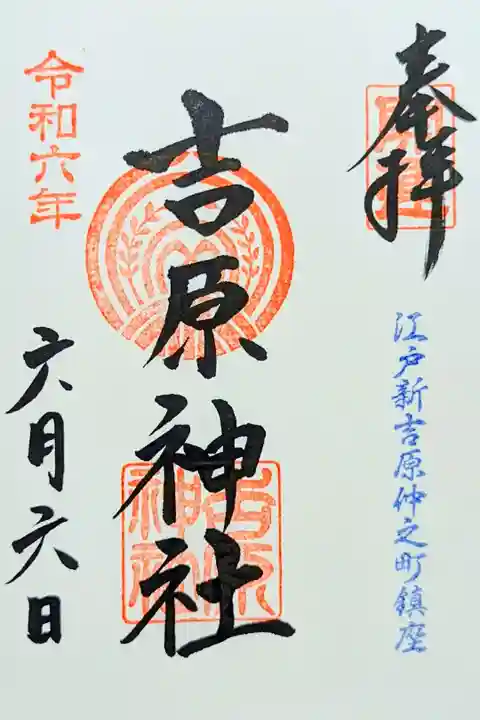 奉拝
江戸新吉原仲之町鎮座
吉原神社
吉原
神社
令和六年
六月六日